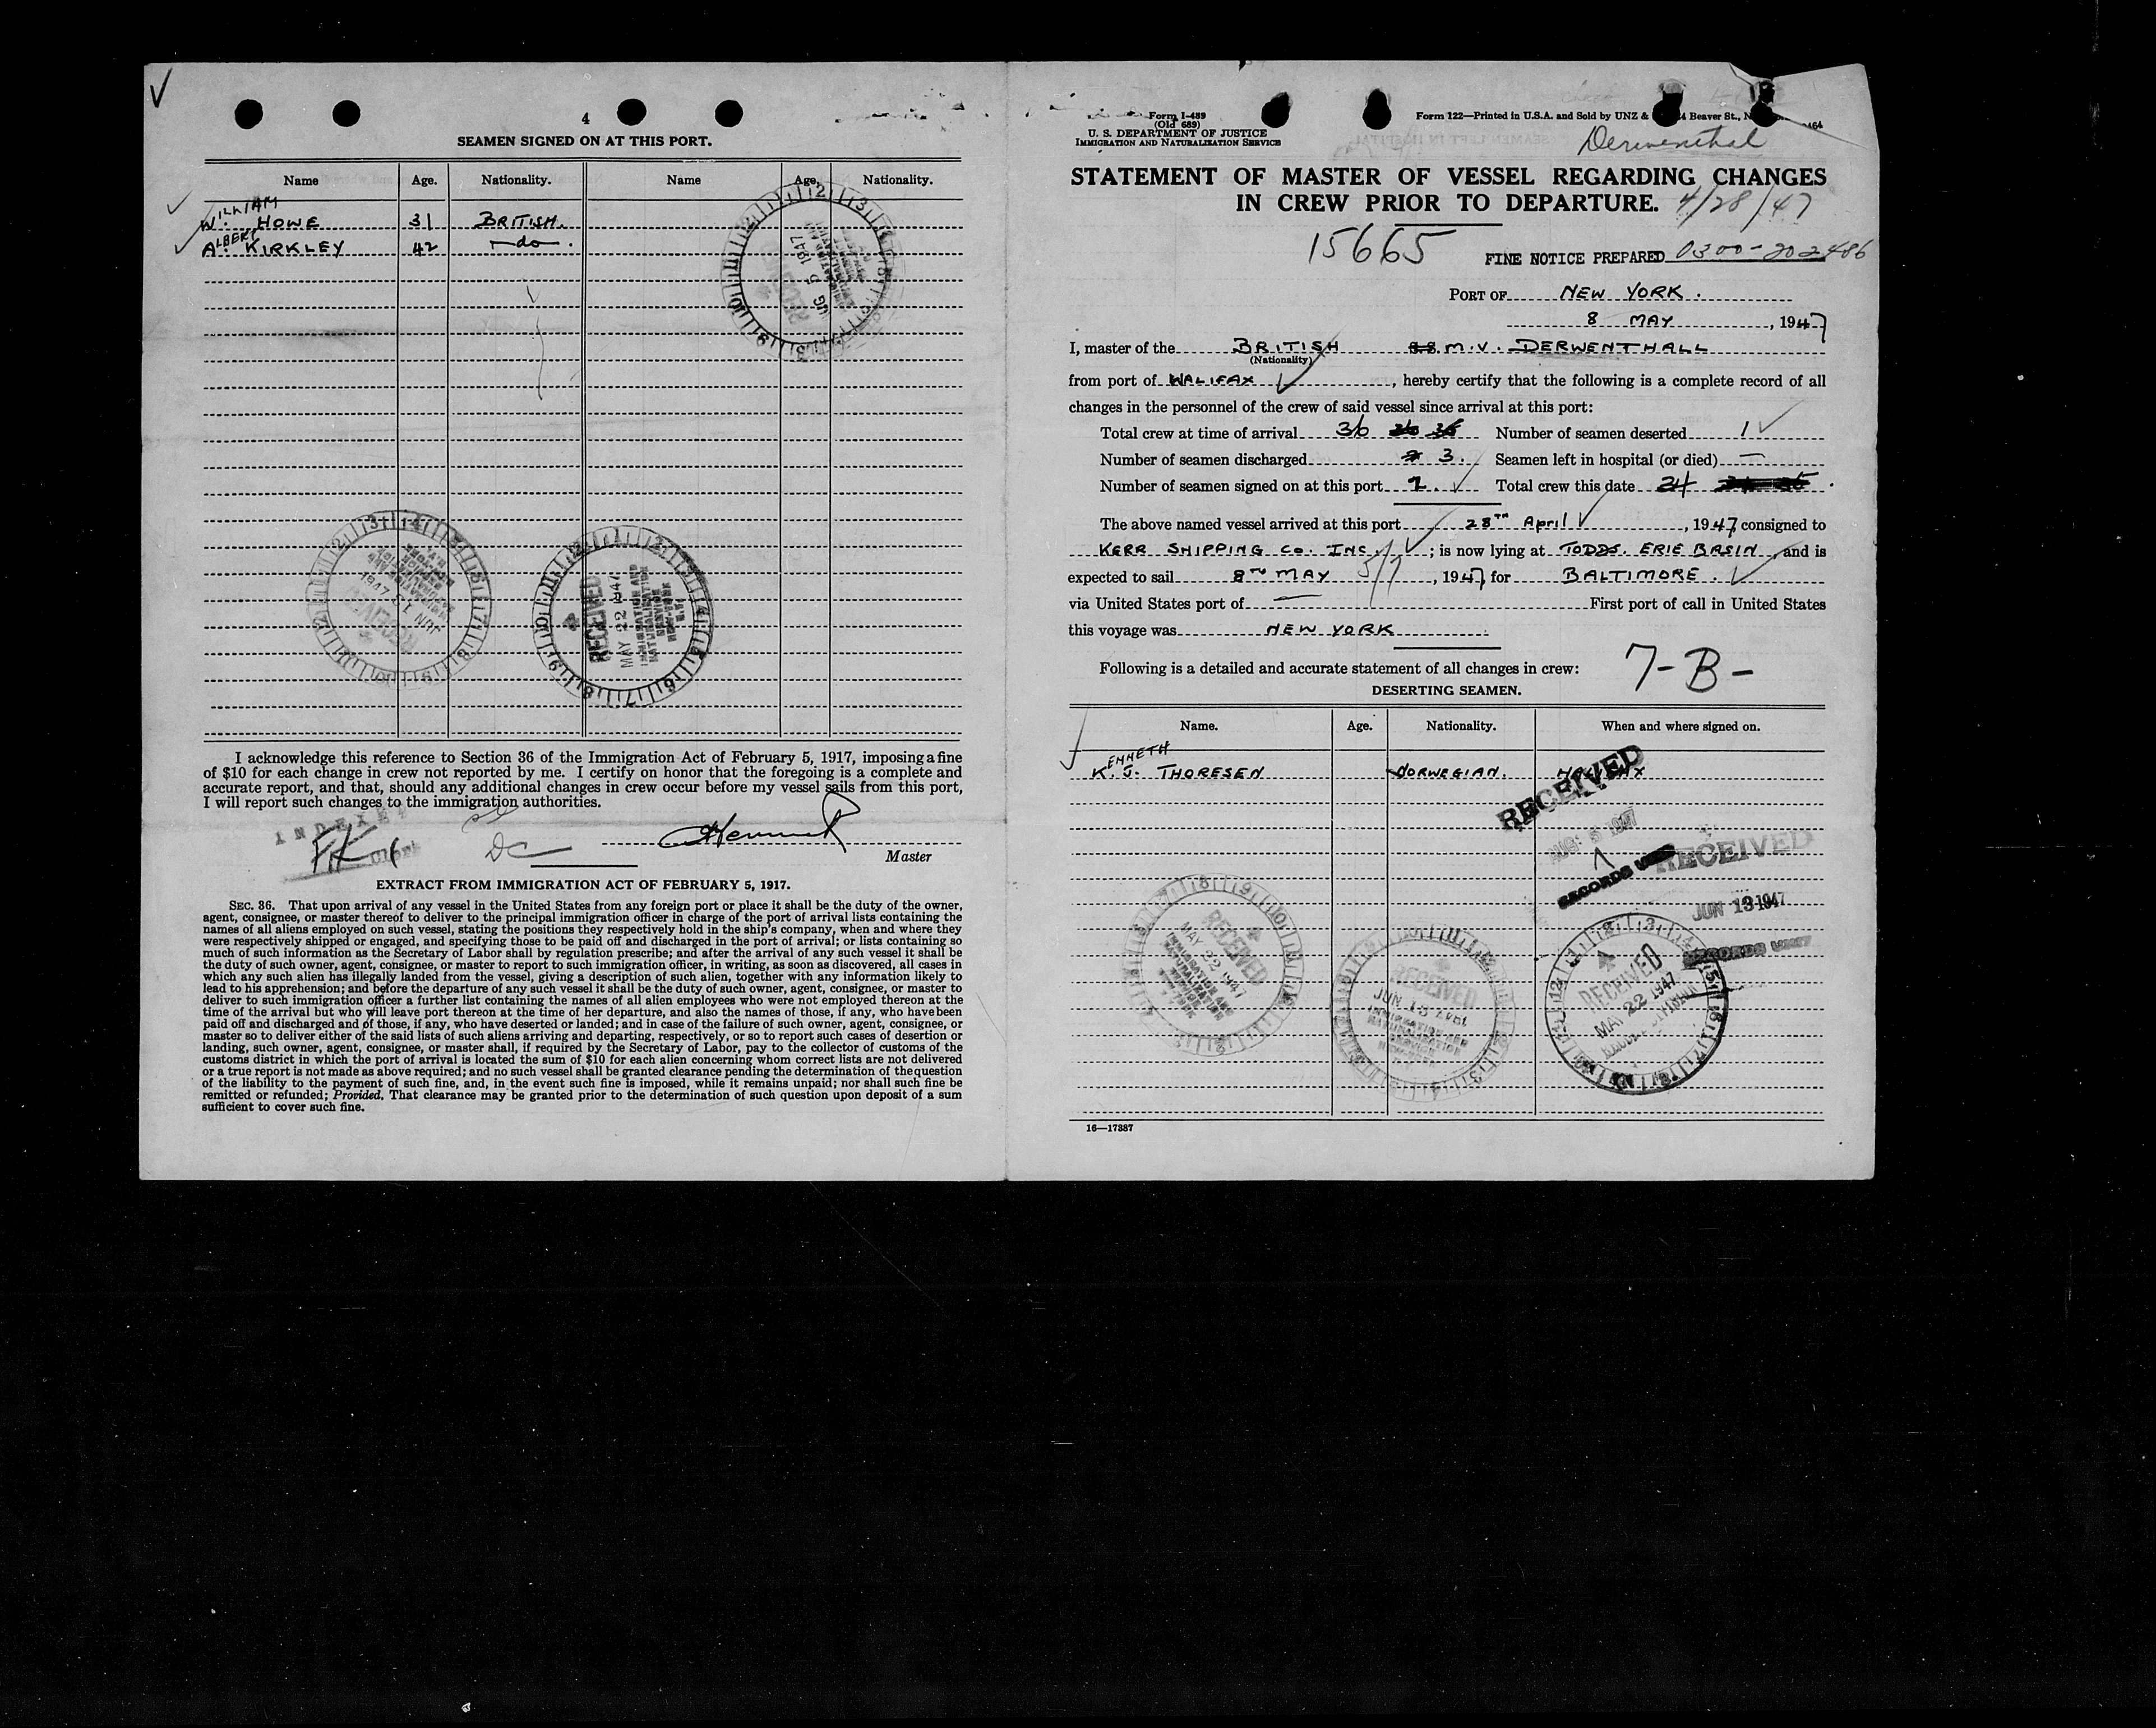 4
SEAMEN SIGNED ON AT THIS PORT.
Name Age. Nationality. Name Age. Nationality.
WILLIAM
W. HOWE 31 BRITISH.
ALBERT
A. KIRKLEY 42 — do — .
RECEIVED
MAY 22 1947
IMMIGRATION AND
NATURALIZATION
SERVICE
NEW YORK
N.Y.
I acknowledge this reference to Section 36 of the Immigration Act of February 5, 1917, imposing a fine
of $10 for each change in crew not reported by me. I certify on honor that the foregoing is a complete and
accurate report, and that, should any additional changes in crew occur before my vessel sails from this port,
I will report such changes to the immigration authorities.
INDEXED
Clerk
DC
Master
EXTRACT FROM IMMIGRATION ACT OF FEBRUARY 5, 1917.
SEC. 36. That upon arrival of any vessel in the United States from any foreign port or place it shall be the duty of the owner,
agent, consignee, or master thereof to deliver to the principal immigration officer in charge of the port of arrival lists containing the
names of all aliens employed on such vessel, stating the positions they respectively hold in the ship's company, when and where they
were respectively shipped or engaged, and specifying those to be paid off and discharged in the port of arrival; or lists containing so
much of such information as the Secretary of Labor shall by regulation prescribe; and after the arrival of any such vessel it shall be
the duty of such owner, agent, consignee, or master to report to such immigration officer, in writing, as soon as discovered, all cases in
which any such alien has illegally landed from the vessel, giving a description of such alien, together with any information likely to
lead to his apprehension; and before the departure of any such vessel it shall be the duty of such owner, agent, consignee, or master to
deliver to such immigration officer a further list containing the names of all alien employees who were not employed thereon at the
time of the arrival but who will leave port thereon at the time of her departure, and also the names of those, if any, who have been
paid off and discharged and of those, if any, who have deserted or landed; and in case of the failure of such owner, agent, consignee, or
master so to deliver either of the said lists of such aliens arriving and departing, respectively, or so to report such cases of desertion or
landing, such owner, agent, consignee, or master shall, if required by the Secretary of Labor, pay to the collector of customs of the
customs district in which the port of arrival is located the sum of $10 for each alien concerning whom correct lists are not delivered
or a true report is not made as above required; and no such vessel shall be granted clearance pending the determination of the question
of the liability to the payment of such fine, and, in the event such fine is imposed, while it remains unpaid; nor shall such fine be
remitted or refunded; Provided, That clearance may be granted prior to the determination of such question upon deposit of a sum
sufficient to cover such fine.
Form I-489
(Old 689)
U. S. DEPARTMENT OF JUSTICE
IMMIGRATION AND NATURALIZATION SERVICE
Form 122—Printed in U.S.A. and Sold by UNZ & Beaver St., N
Derwenthal
STATEMENT OF MASTER OF VESSEL REGARDING CHANGES
IN CREW PRIOR TO DEPARTURE. 4/28/47
15665
FINE NOTICE PREPARED 0300-202486
PORT OF NEW YORK.
8 MAY, 1947
I, master of the BRITISH M.V. DERWENTHALL
(Nationality)
from port of HALIFAX, hereby certify that the following is a complete record of all
changes in the personnel of the crew of said vessel since arrival at this port:
Total crew at time of arrival 36 Number of seamen deserted 1
Number of seamen discharged 3. Seamen left in hospital (or died) —
Number of seamen signed on at this port 2. Total crew this date 34
The above named vessel arrived at this port 28TH April, 1947, consigned to
KERR SHIPPING CO. INC.; is now lying at TODDS. ERIE BASIN, and is
expected to sail 8TH MAY 5/7, 1947, for BALTIMORE.
via United States port of — First port of call in United States
this voyage was NEW YORK
Following is a detailed and accurate statement of all changes in crew: 7-B-
DESERTING SEAMEN.
Name. Age. Nationality. When and where signed on.
KENNETH
K. J. THORESEN NORWEGIAN. HALIFAX
RECEIVED
AUG 5 1947
RECORDS UNIT
RECEIVED
JUN 13 1947
RECORDS UNIT
RECEIVED
MAY 22 1947
IMMIGRATION AND
NATURALIZATION
SERVICE
NEW YORK
RECEIVED
IMMIGRATION AND
NATURALIZATION
SERVICE
RECEIVED
MAY 22 1947
16—17387